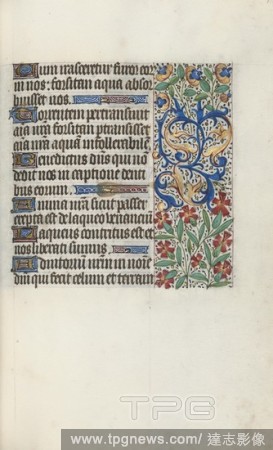 Cum irasceretur furor eor
in nos: forsitan aqua absor
buisset nos.
Torrentem pertransiuit
aia nra forsitan pertransisset
aia nra aquam intollerabile
Benedictus dns qui no
dedit nos in captione denti
bus eorum.
Anima nra sicut passer
erepta est de laqueo venancium
Laqueus contritus est et
nos liberati sumus.
Adiutorium nrm in noie
dni qui fecit celum et terram
TPG
www.tpgnews.com/達志影像